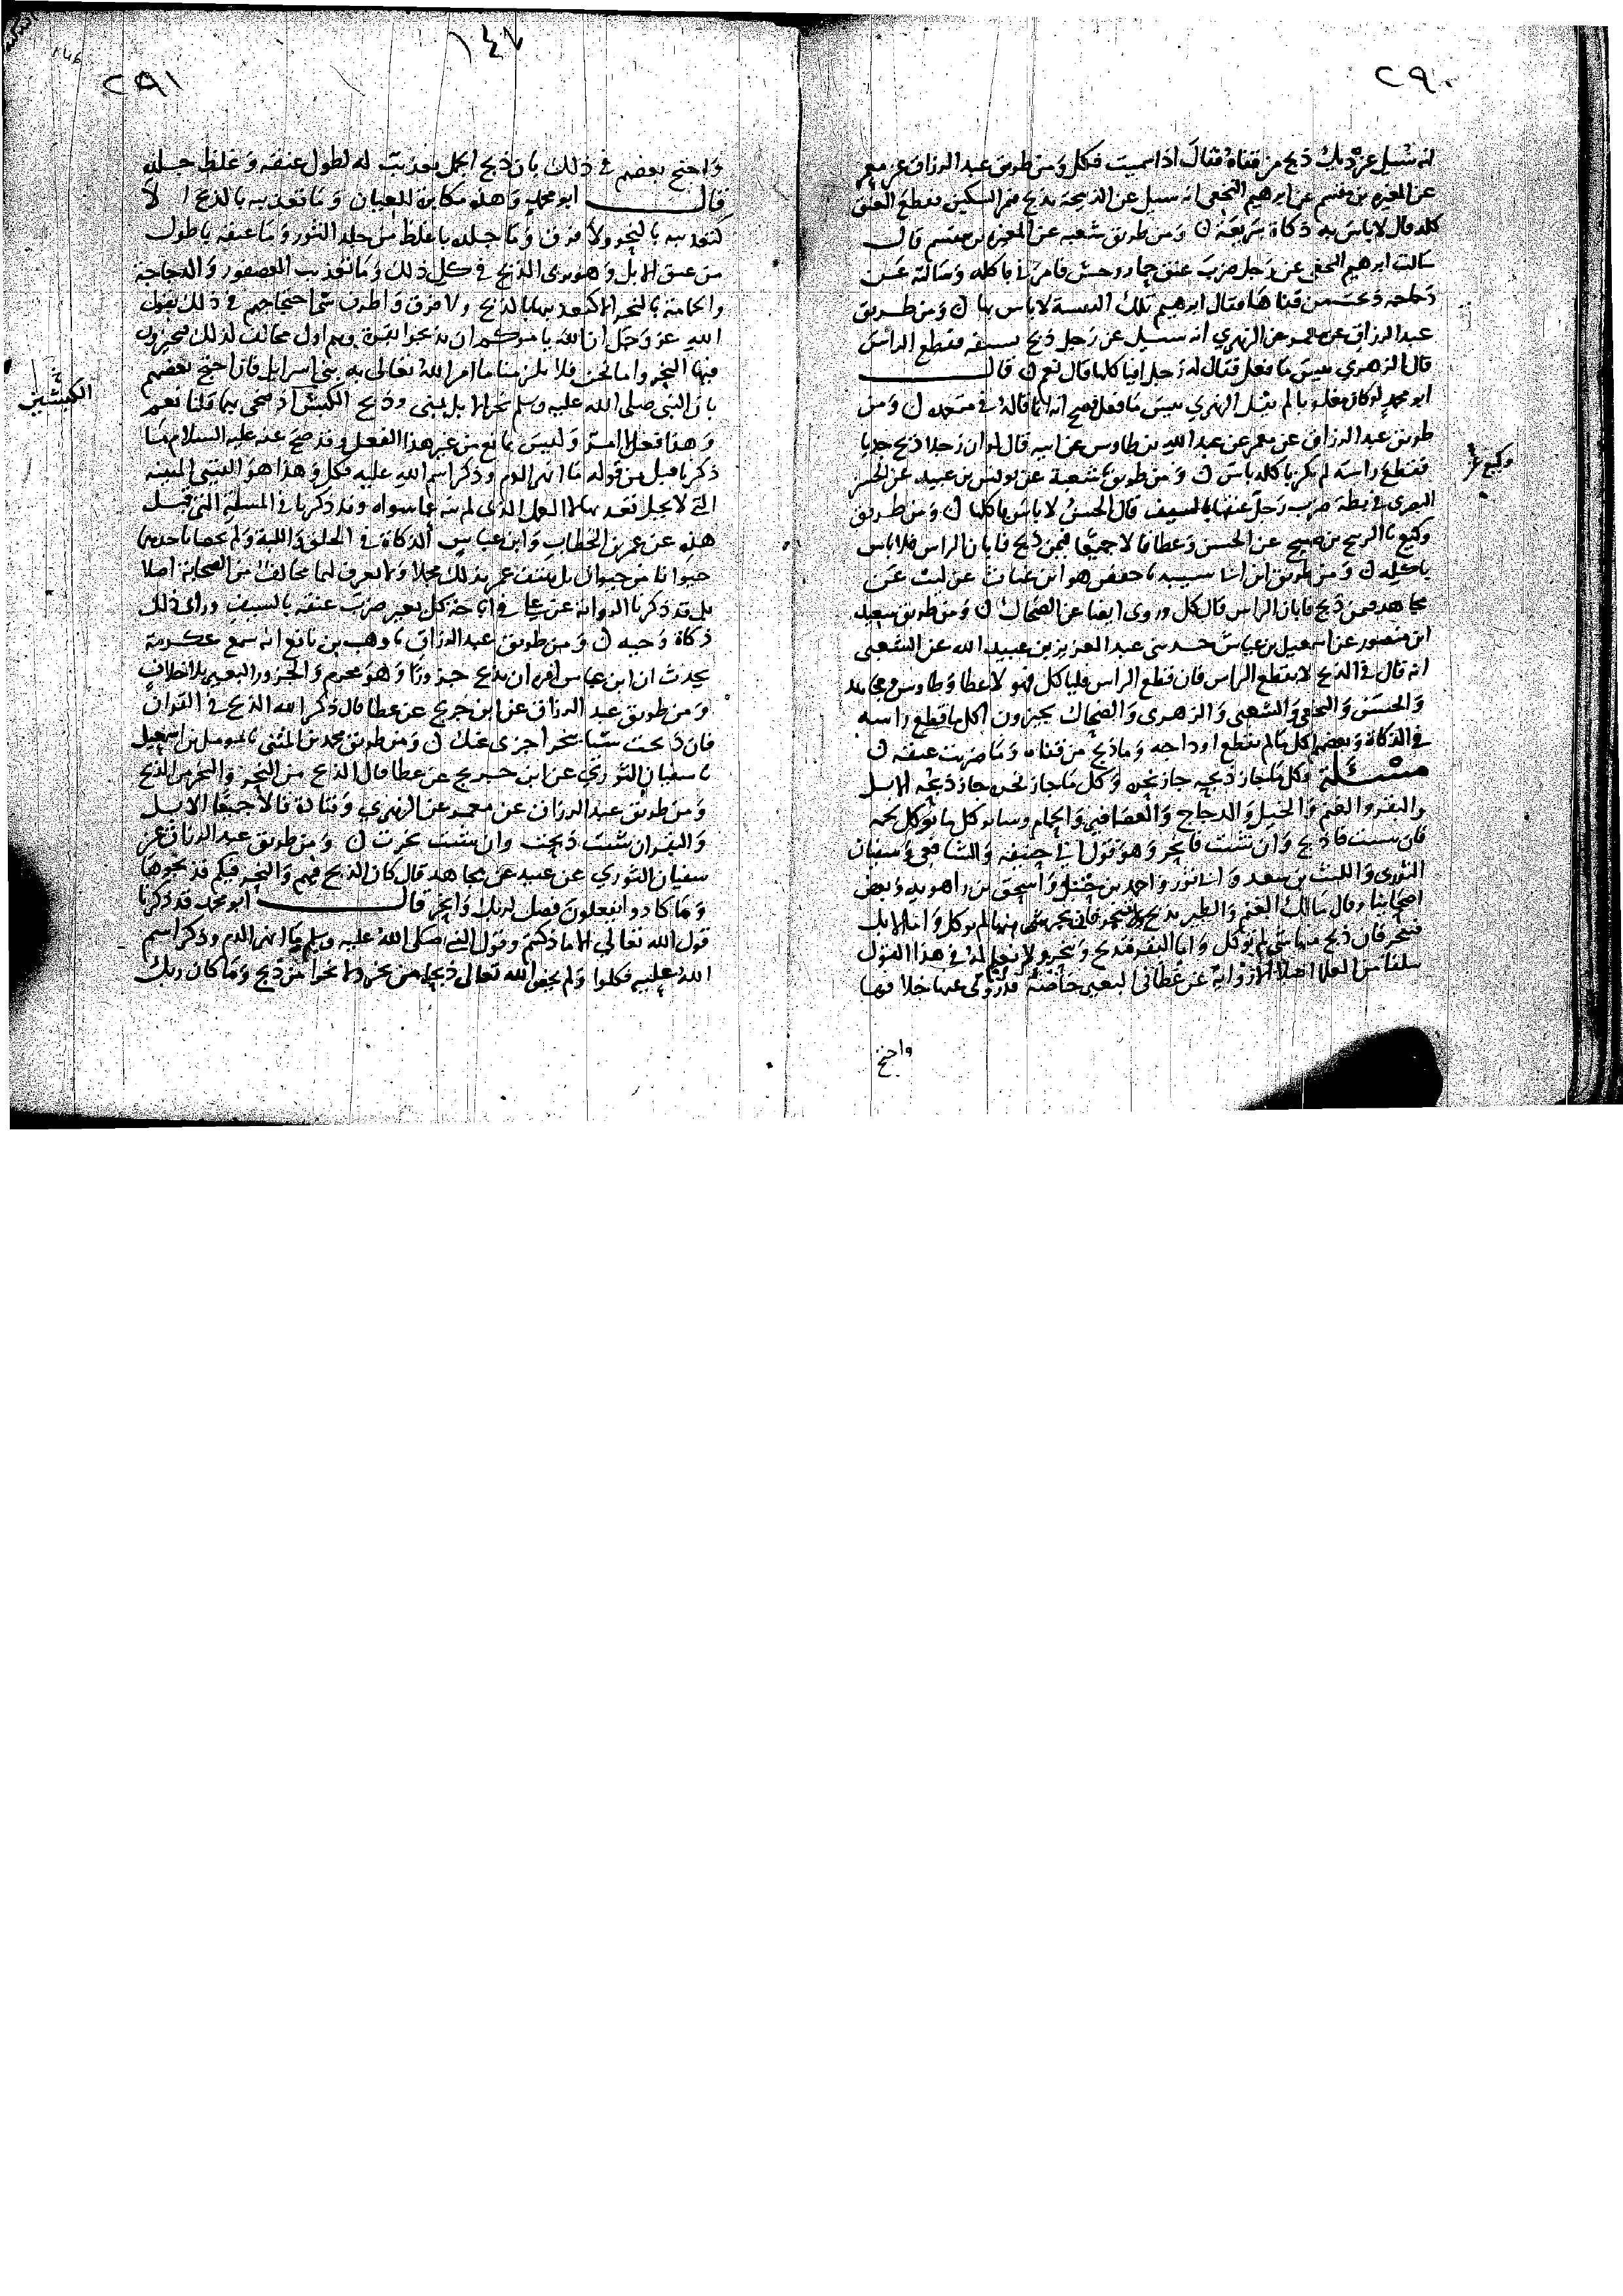 ٢٩٠
انه سئل عن ديك ذبح من قفاه فقال اذا سميت فكل ومن طريق عبد الرزاق عن معمر
عن المغيرة بن مقسم عن ابرهيم النخعي انه سيل عن الذبيحة تذبح فتمر السكين فتقطع العنق
كله قال لا باس به ذكاة سريعة ومن طريق شعبه عن المغيرة بن مقسم قال
سالت ابرهيم النخعي عن رجل ضرب عنق حمار وحش فامرني باكله وسالته عن
دجاجة ذبحت من قفاها فقال ابرهيم تلك القفينة لا باس بها ومن طريق
عبد الرزاق عن معمر عن الزهري انه سيل عن رجل ذبح بسيفه فقطع الراس
قال الزهري بيس ما فعل فقال له رجل افياكلها قال نعم قال
ابو محمد لو كان مغلوبا لم يقل الزهري بيس ما فعل فصح انه انما قاله في متعمد ومن
طريق عبد الرزاق عن معمر عن عبد الله بن طاوس عن ابيه قال لو ان رجلا ذبح جديا
فقطع راسه لم يكن باكله باس ومن طريق شعبة عن يونس بن عبيد عن الحسن
البصري في بطة ضرب رجل عنقها بالسيف قال الحسن لا باس باكلها ومن طريق
وكيع نا الربيع بن صبيح عن الحسن وعطا قالا جميعا فيمن ذبح فابان الراس فلا باس
باكله ومن طريق ابن ابي شيبه نا حفص هو ابن غياث عن ليث عن
مجاهد فيمن ذبح فابان الراس قال كل وروي ايضا عن الضحاك ومن طريق سعيد
ابن منصور عن اسمعيل بن عياش حدثني عبد العزيز بن عبيد الله عن الشعبي
انه قال في الذبح لا يقطع الراس فان قطع الراس فلياكل فهولا عطا وطاوس ومجاهد
والحسن والنخعي والشعبي والزهري والضحاك يجيزون اكل ما قطع راسه
في الذكاة وبعضهم اكل ما لم تقطع اوداجه وما ذبح من قفاه وما ضربت عنقه
مسئلة وكل ما جاز ذبحه جاز نحره وكل ما جاز نحره جاز ذبحه الابل
والبقر والغنم والخيل والدجاج والعصافير والحمام وساير كل ما يوكل لحمه
فان شيت فاذبح وان شيت فانحر وهو قول ابي حنيفه والشافعي وسفيان
الثوري والليث بن سعد وابي ثور واحمد بن حنبل واسحق بن راهويه وبعض
اصحابنا وقال مالك الغنم والطير تذبح ولا تنحر فان نحر شي منها لم يوكل واما الابل
فتنحر فان ذبح منها شي لم توكل واما البقر فتذبح وتنحر ولا نعلم له في هذا القول
سلفا من العلما اصلا الا رواية عن عطا في البعير خاصة قد روي عنه خلافها
واحتج
وكيع عن
١٤٧
٢٩١
واحتج بعضهم في ذلك بان ذبح الجمل تعذيب له لطول عنقه وغلظ جلده
قال ابو محمد وهذه مكابرة للعيان وما تعذيبه بالذبح الا
كتعذيبه بالنحر ولا فرق وما جلده باغلظ من جلد الثور وما عنقه باطول
من عنق الايل وهو يرى الذبح في كل ذلك وما تعذيب العصفور والدجاجة
والحمامة بالنحر الا كتعذيبها بالذبح ولا فرق واطرف شي احتجاجهم في ذلك بقول
الله عز وجل ان الله يامركم ان تذبحوا بقرة وهم اول مخالف لذلك فيجيزون
فيها النحر واما نحن فلا يلزمنا ما امر الله تعالى به بني اسرايل فان احتج بعضهم
بان النبي صلى الله عليه وسلم نحر الابل بمنى وذبح الكبش اذ ضحى بهما قلنا نعم
وهذا فعل لا امر وليس بمانع من غير هذا الفعل وقد صح عنه عليه السلام ما
ذكرنا قبل من قوله ما انهر الدم وذكر اسم الله عليه فكل وهذا هو الفتيى المبينة
التي لا يحل تعديها لا العمل الذي لم ينه عما سواه وقد ذكرنا في المسلة التي قبل
هذه عن عمر بن الخطاب وابن عباس الذكاة في الحلق واللبة ولم يخصا باحديهما
حيوانا من حيوان بل بعث عمر بذلك مجملا ولا يعرف لهما مخالف من الصحابة اصلا
بل قد ذكرنا الرواية عن علي في اباحة اكل بعير ضرب عنقه بالسيف ورأى ذلك
ذكاة وحيه ومن طريق عبد الرزاق نا وهب بن نافع انه سمع عكرمة
يحدث ان ابن عباس امره ان يذبح جزورا وهو محرم والجزور البعير بلا خلاف
ومن طريق عبد الرزاق عن ابن جريج عن عطا قال ذكر الله الذبح في القران
فان ذبحت شيا ينحر اجزى عنك ومن طريق محمد بن المثنى نا مومل بن اسمعيل
نا سفيان الثوري عن ابن جريج عن عطا قال الذبح من النحر والنحر من الذبح
ومن طريق عبد الرزاق عن معمر عن الزهري وقتادة قالا جميعا الابل
والبقر ان شيت ذبحت وان شيت نحرت ومن طريق عبد الرزاق عن
سفيان الثوري عن عبيد عن مجاهد قال كان الذبح فيهم والنحر فيكم فذبحوها
وما كادوا يفعلون فصل لربك وانحر قال ابو محمد قد ذكرنا
قول الله تعالى الا ما ذكيتم وقول النبي صلى الله عليه وسلم ما انهر الدم وذكر اسم
الله عليه فكلوا ولم يخص الله تعالى ذبحا من نحر ولا نحرا من ذبح وما كان ربك
الكبشين